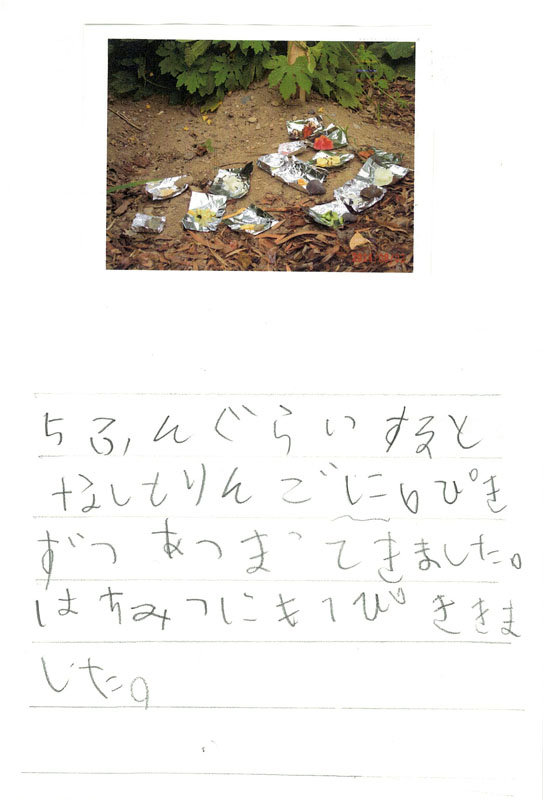 5ふんぐらいすると
なしもりんごに6ぴき
ずつあつまってきました。
はちみつにも1ぴききま
した。